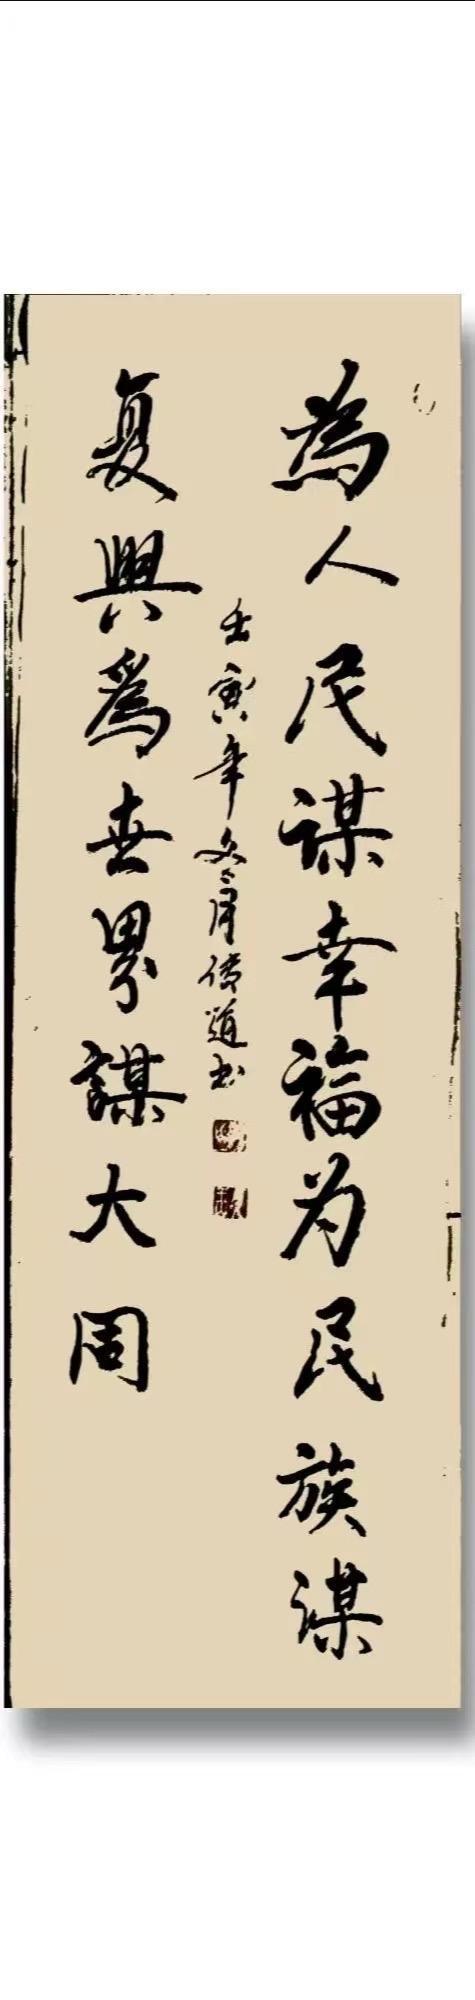 為人民谋幸福为民族谋
复興為世界謀大周
壬寅年冬月傳道书